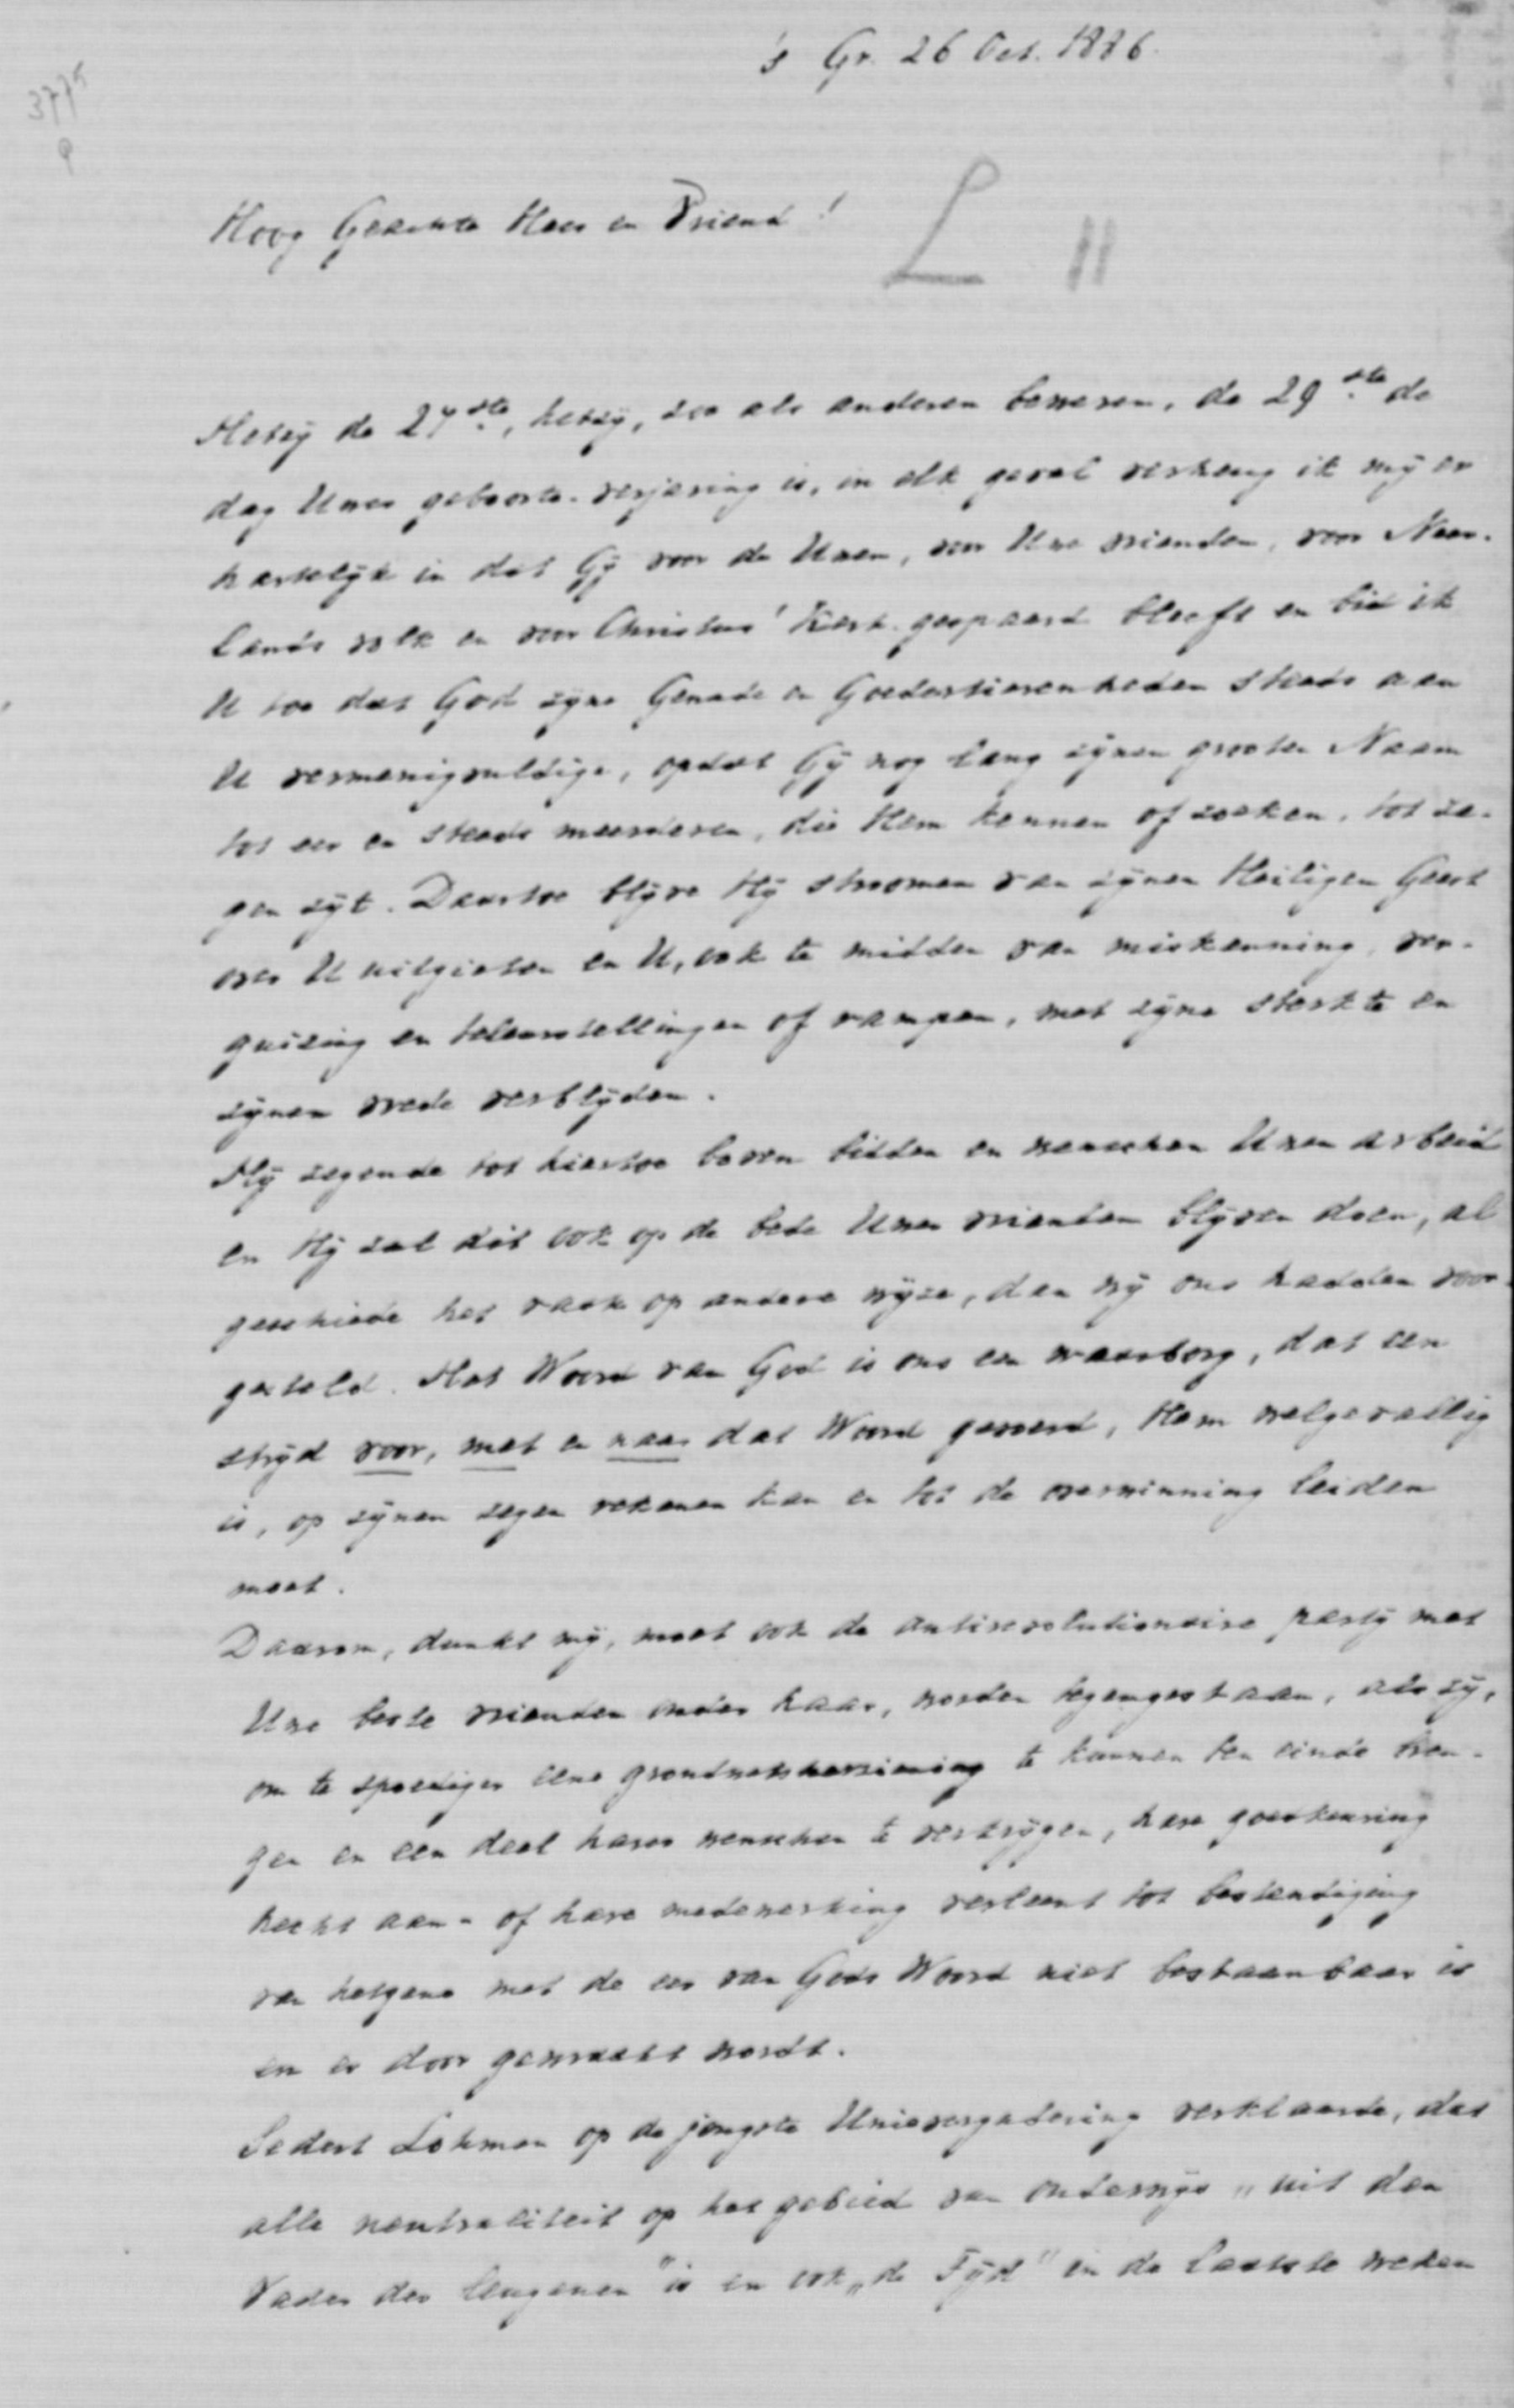 's Gr. 26 Oct. 1886.
3775
Hoog Geachte Heer en Vriend!
L II
Hetzij de 27ste, hetzij, zoo als anderen beweren, de 29ste de
dag Uwer geboorte-verjaring is, in elk geval verheug ik mij er
hartelijk in dat Gij voor de Uwen, voor Uwe vrienden, voor Neer-
lands volk en voor Christus' Kerk gespaard bleeft en bid ik
U toe dat God zijne Genade en Goedertierenheden steeds aan
U vermenigvuldige, opdat Gij nog lang zijnen grooten Naam
tot eer en steeds meerderen, die Hem kennen of zoeken, tot ze-
gen zijt. Daartoe blijve Hij stroomen van zijnen Heiligen Geest
over U uitgieten en U, ook te midden van miskenning, ver-
guizing en teleurstellingen of rampen, met zijne sterkte en
zijnen vrede verblijden.
Hij zegende tot hiertoe boven bidden en wenschen Uwen arbeid
en Hij zal dit ook op de bede Uwer vrienden blijven doen, al
geschiede het vaak op andere wijze, dan wij ons hadden voor-
gesteld. Het Woord van God is ons een waarborg, dat een
strijd voor, met en naar dat Woord gevoerd, Hem welgevallig
is, op zijnen zegen rekenen kan en tot de overwinning leiden
moet.
Daarom, dunkt mij, moet ook de antirevolutionaire partij met
Uwe beste vrienden onder haar, worden tegengestaan, als zij,
om te spoediger eene grondwetsherziening te kunnen ten einde bren-
gen en een deel harer wenschen te verkrijgen, hare goedkeuring
hecht aan- of hare medewerking verleent tot bestendiging
van hetgene met de eer van Gods Woord niet bestaanbaar is
en er door gewraakt wordt.
Sedert Lohman op de jongste Unievergadering verklaarde, dat
alle neutraliteit op het gebied van onderwijs „uit den
Vader der leugenen" is en ook „de Tijd" in de laatste weken